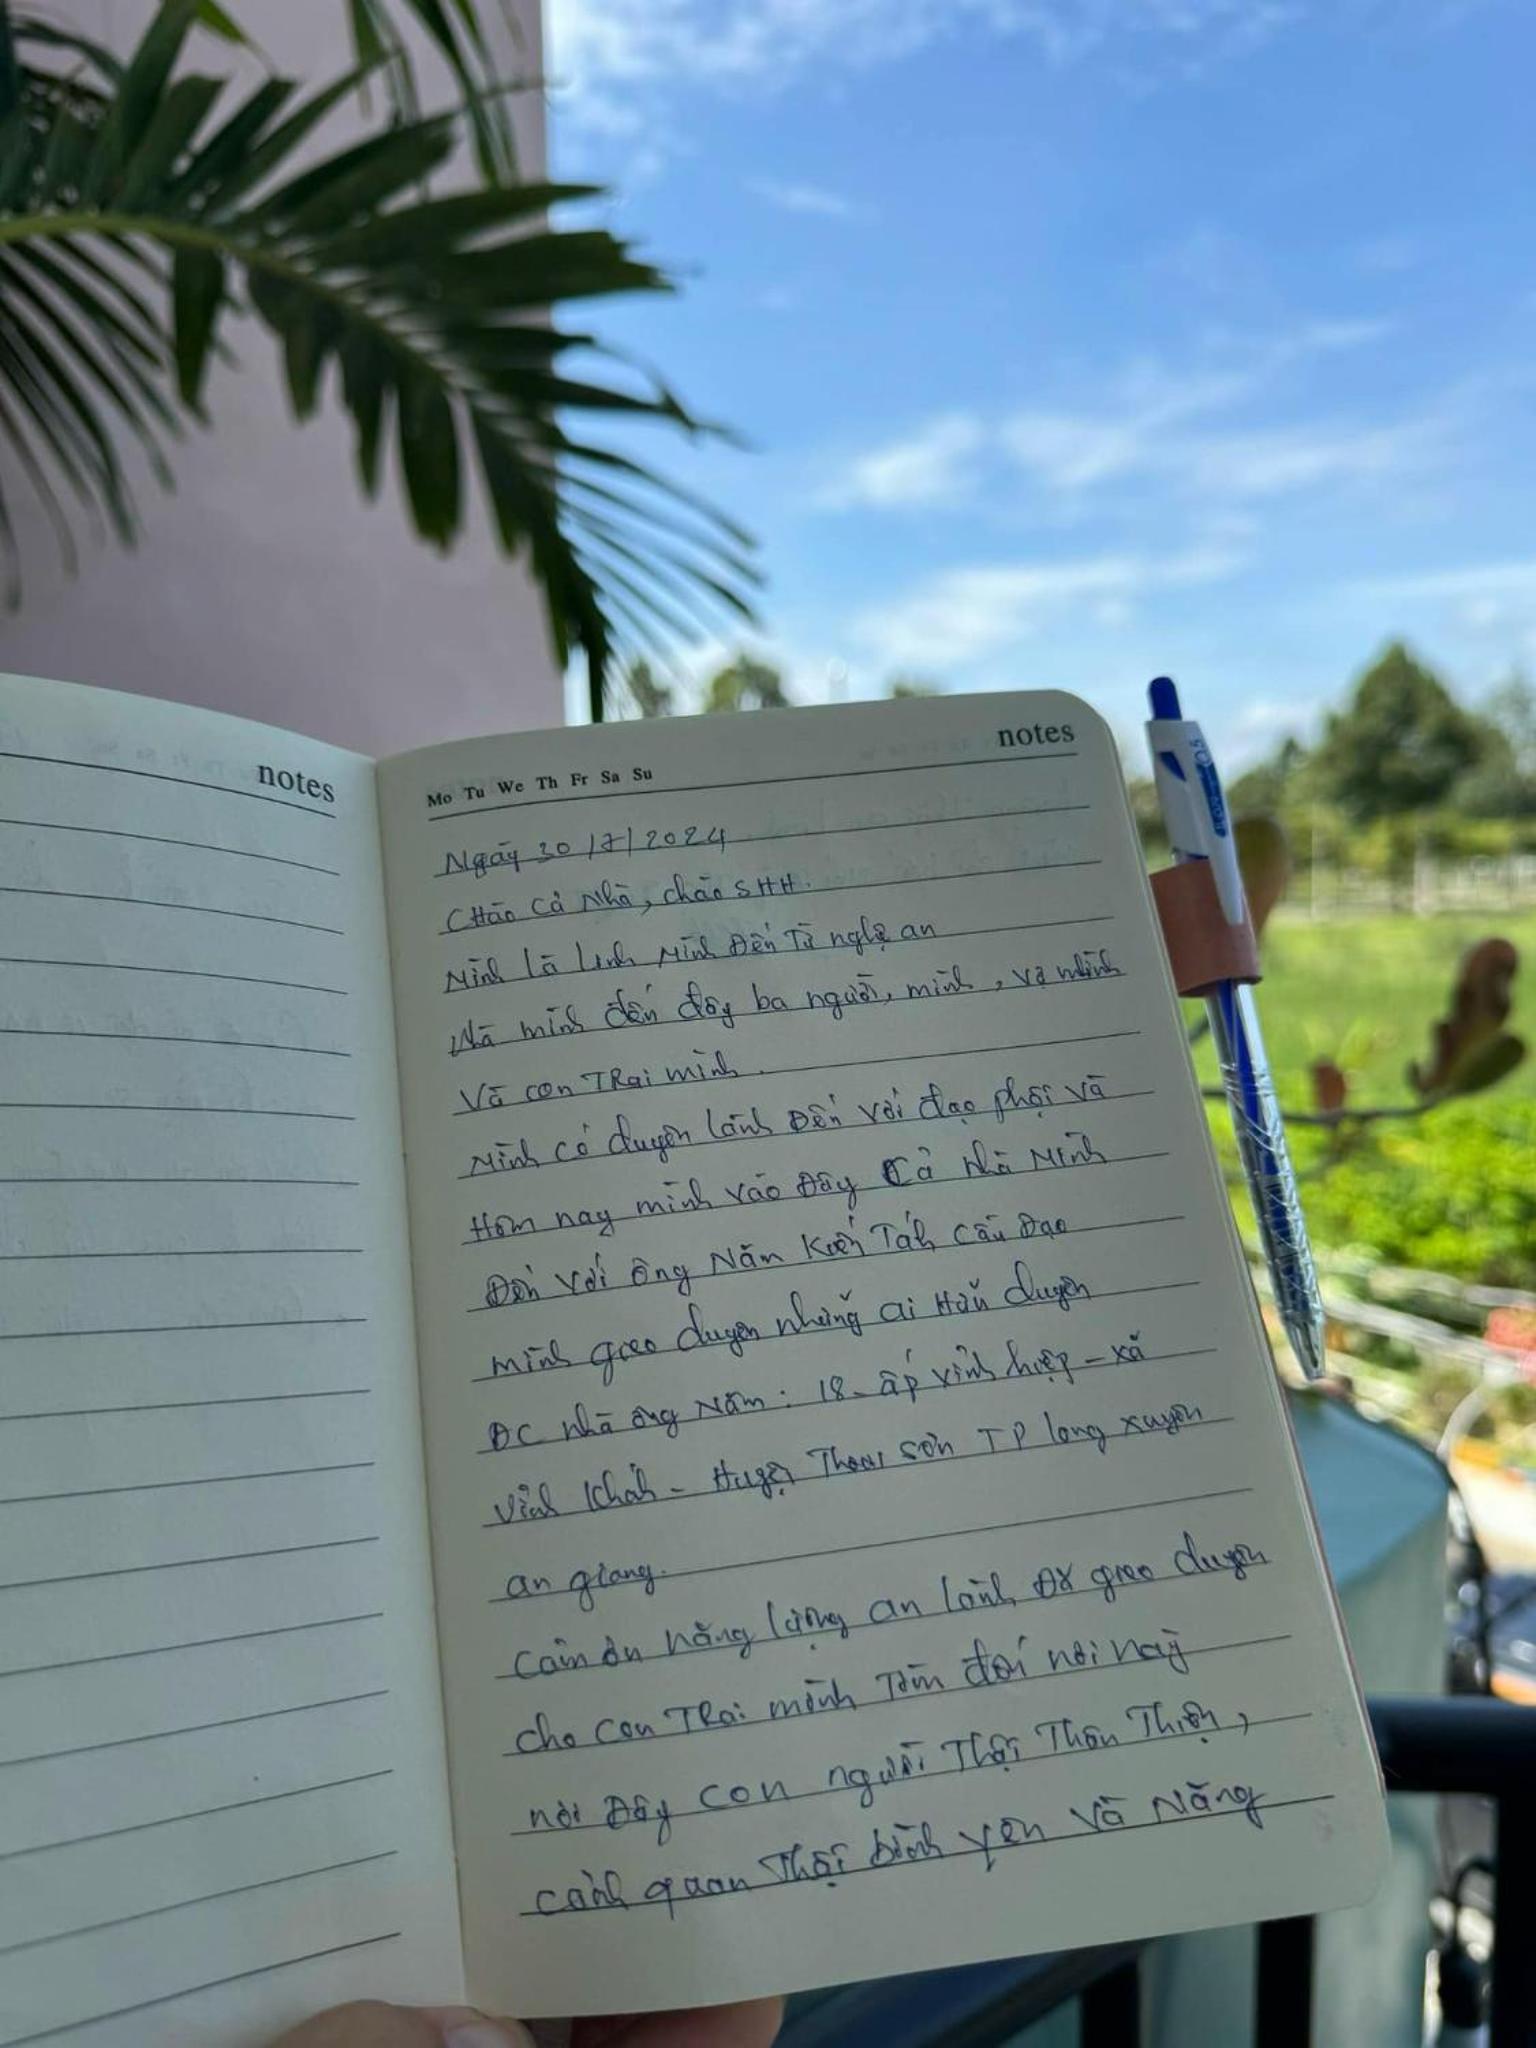 notes
Mo Tu We Th Fr Sa Su
notes
Ngày 30/7/2024
Chào cả nhà, chào SHH.
Mình là Linh mình đến từ nghệ an
Nhà mình đến đây ba người, mình, vợ mình
Và con trai mình.
Mình có duyên lành đến với đạo phật và
Hôm nay mình vào đây cả nhà mình
Đến với ông Năm Kiến Tánh Cầu Đạo
mình gieo duyên những ai Hữu duyên
ĐC nhà ông Năm: 18 - ấp vĩnh hiệp - xã
Vĩnh Khánh - Huyện Thoại Sơn TP long xuyên
an giang.
Cảm ơn năng lượng an lành đã gieo duyên
cho con trai mình tìm đến nơi này
nơi đây con người Thật Thân Thiện,
cảnh quan Thật bình yên và Năng
0.5